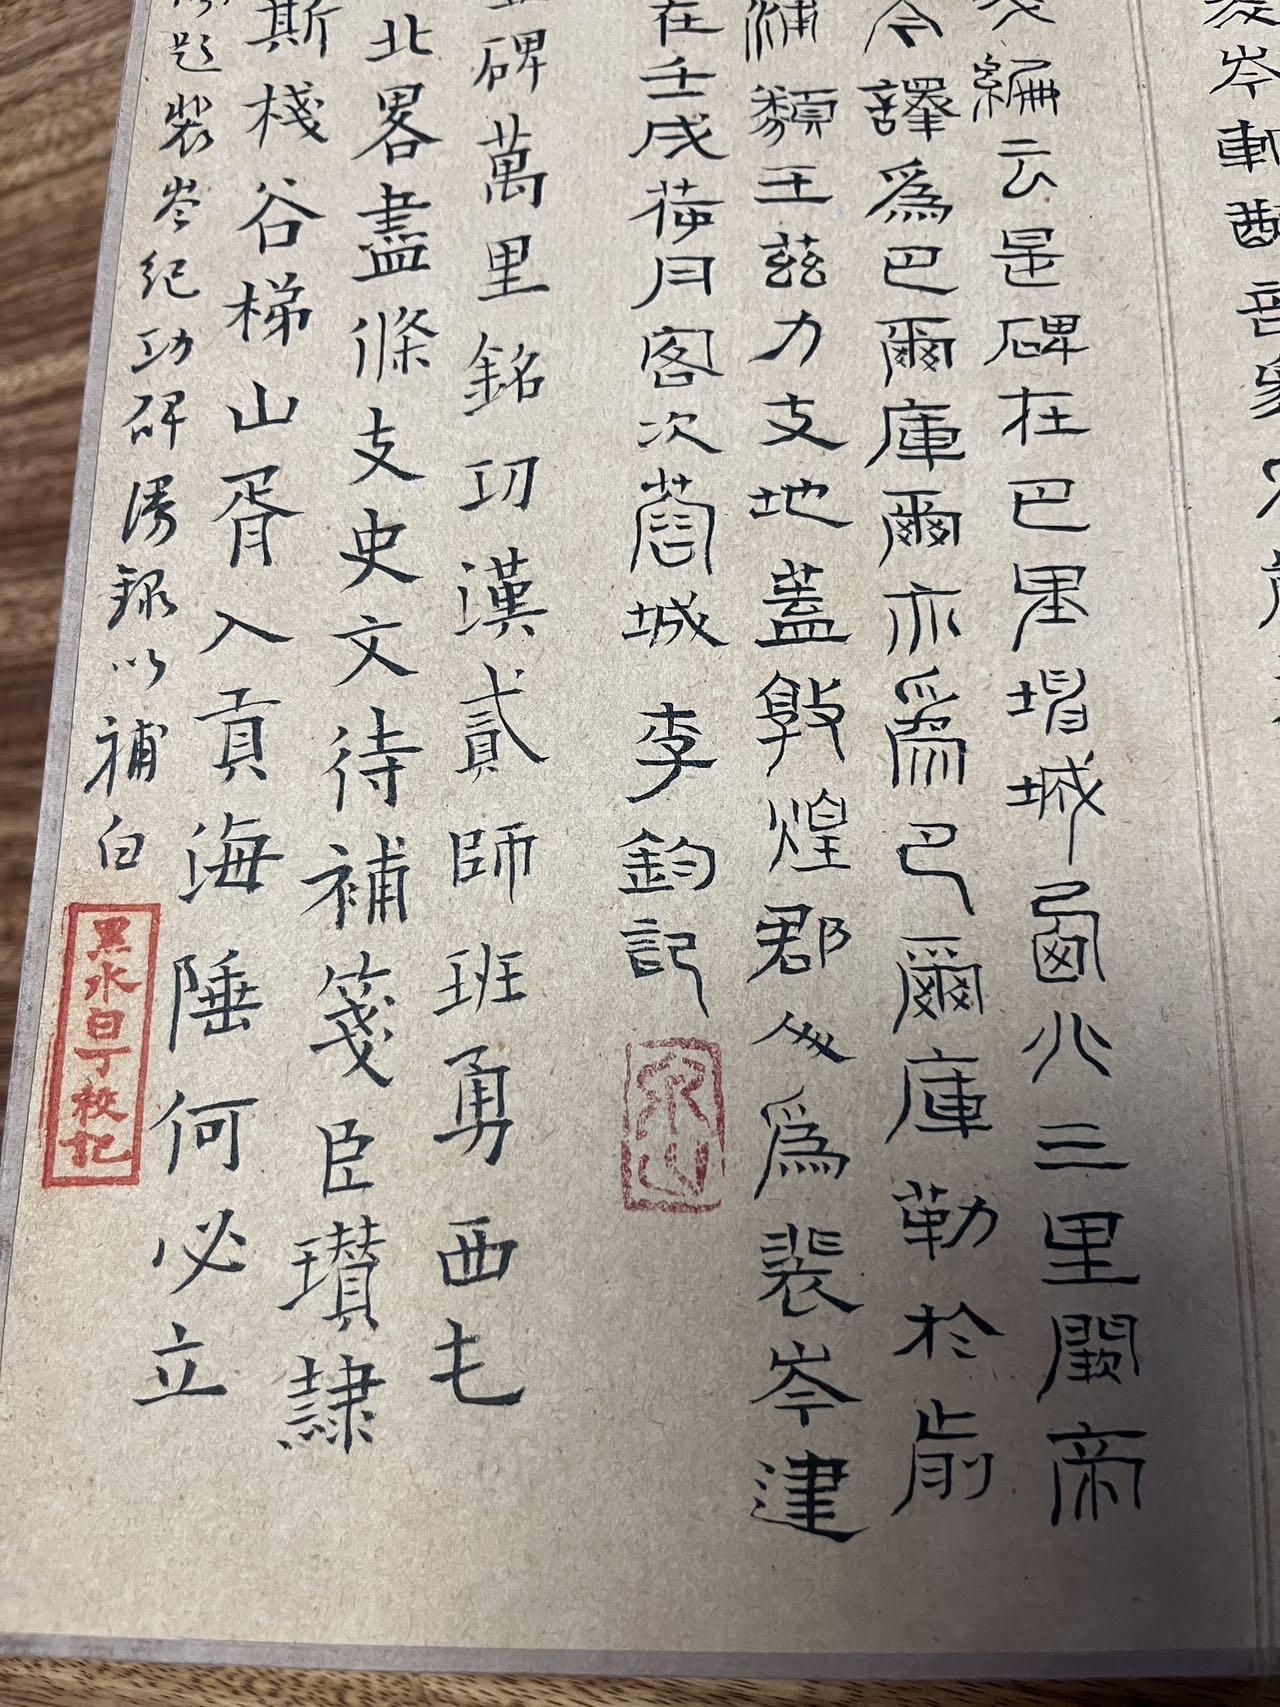 岑
編云是碑在巴里堦城西北三里關帝
今譯爲巴爾庫爾亦爲巴爾庫勒於前
蒲類王茲力支地蓋敦煌郡人爲裴岑建
在壬戌荷月客次蒼城 李鈞記
碑萬里銘功漢貳師班勇西屯
北畧盡條支史文待補箋臣瓚隷
斯棧谷梯山胥入貢海陲何必立
題裴岑紀功碑湯錄以補白
黑水白丁校記